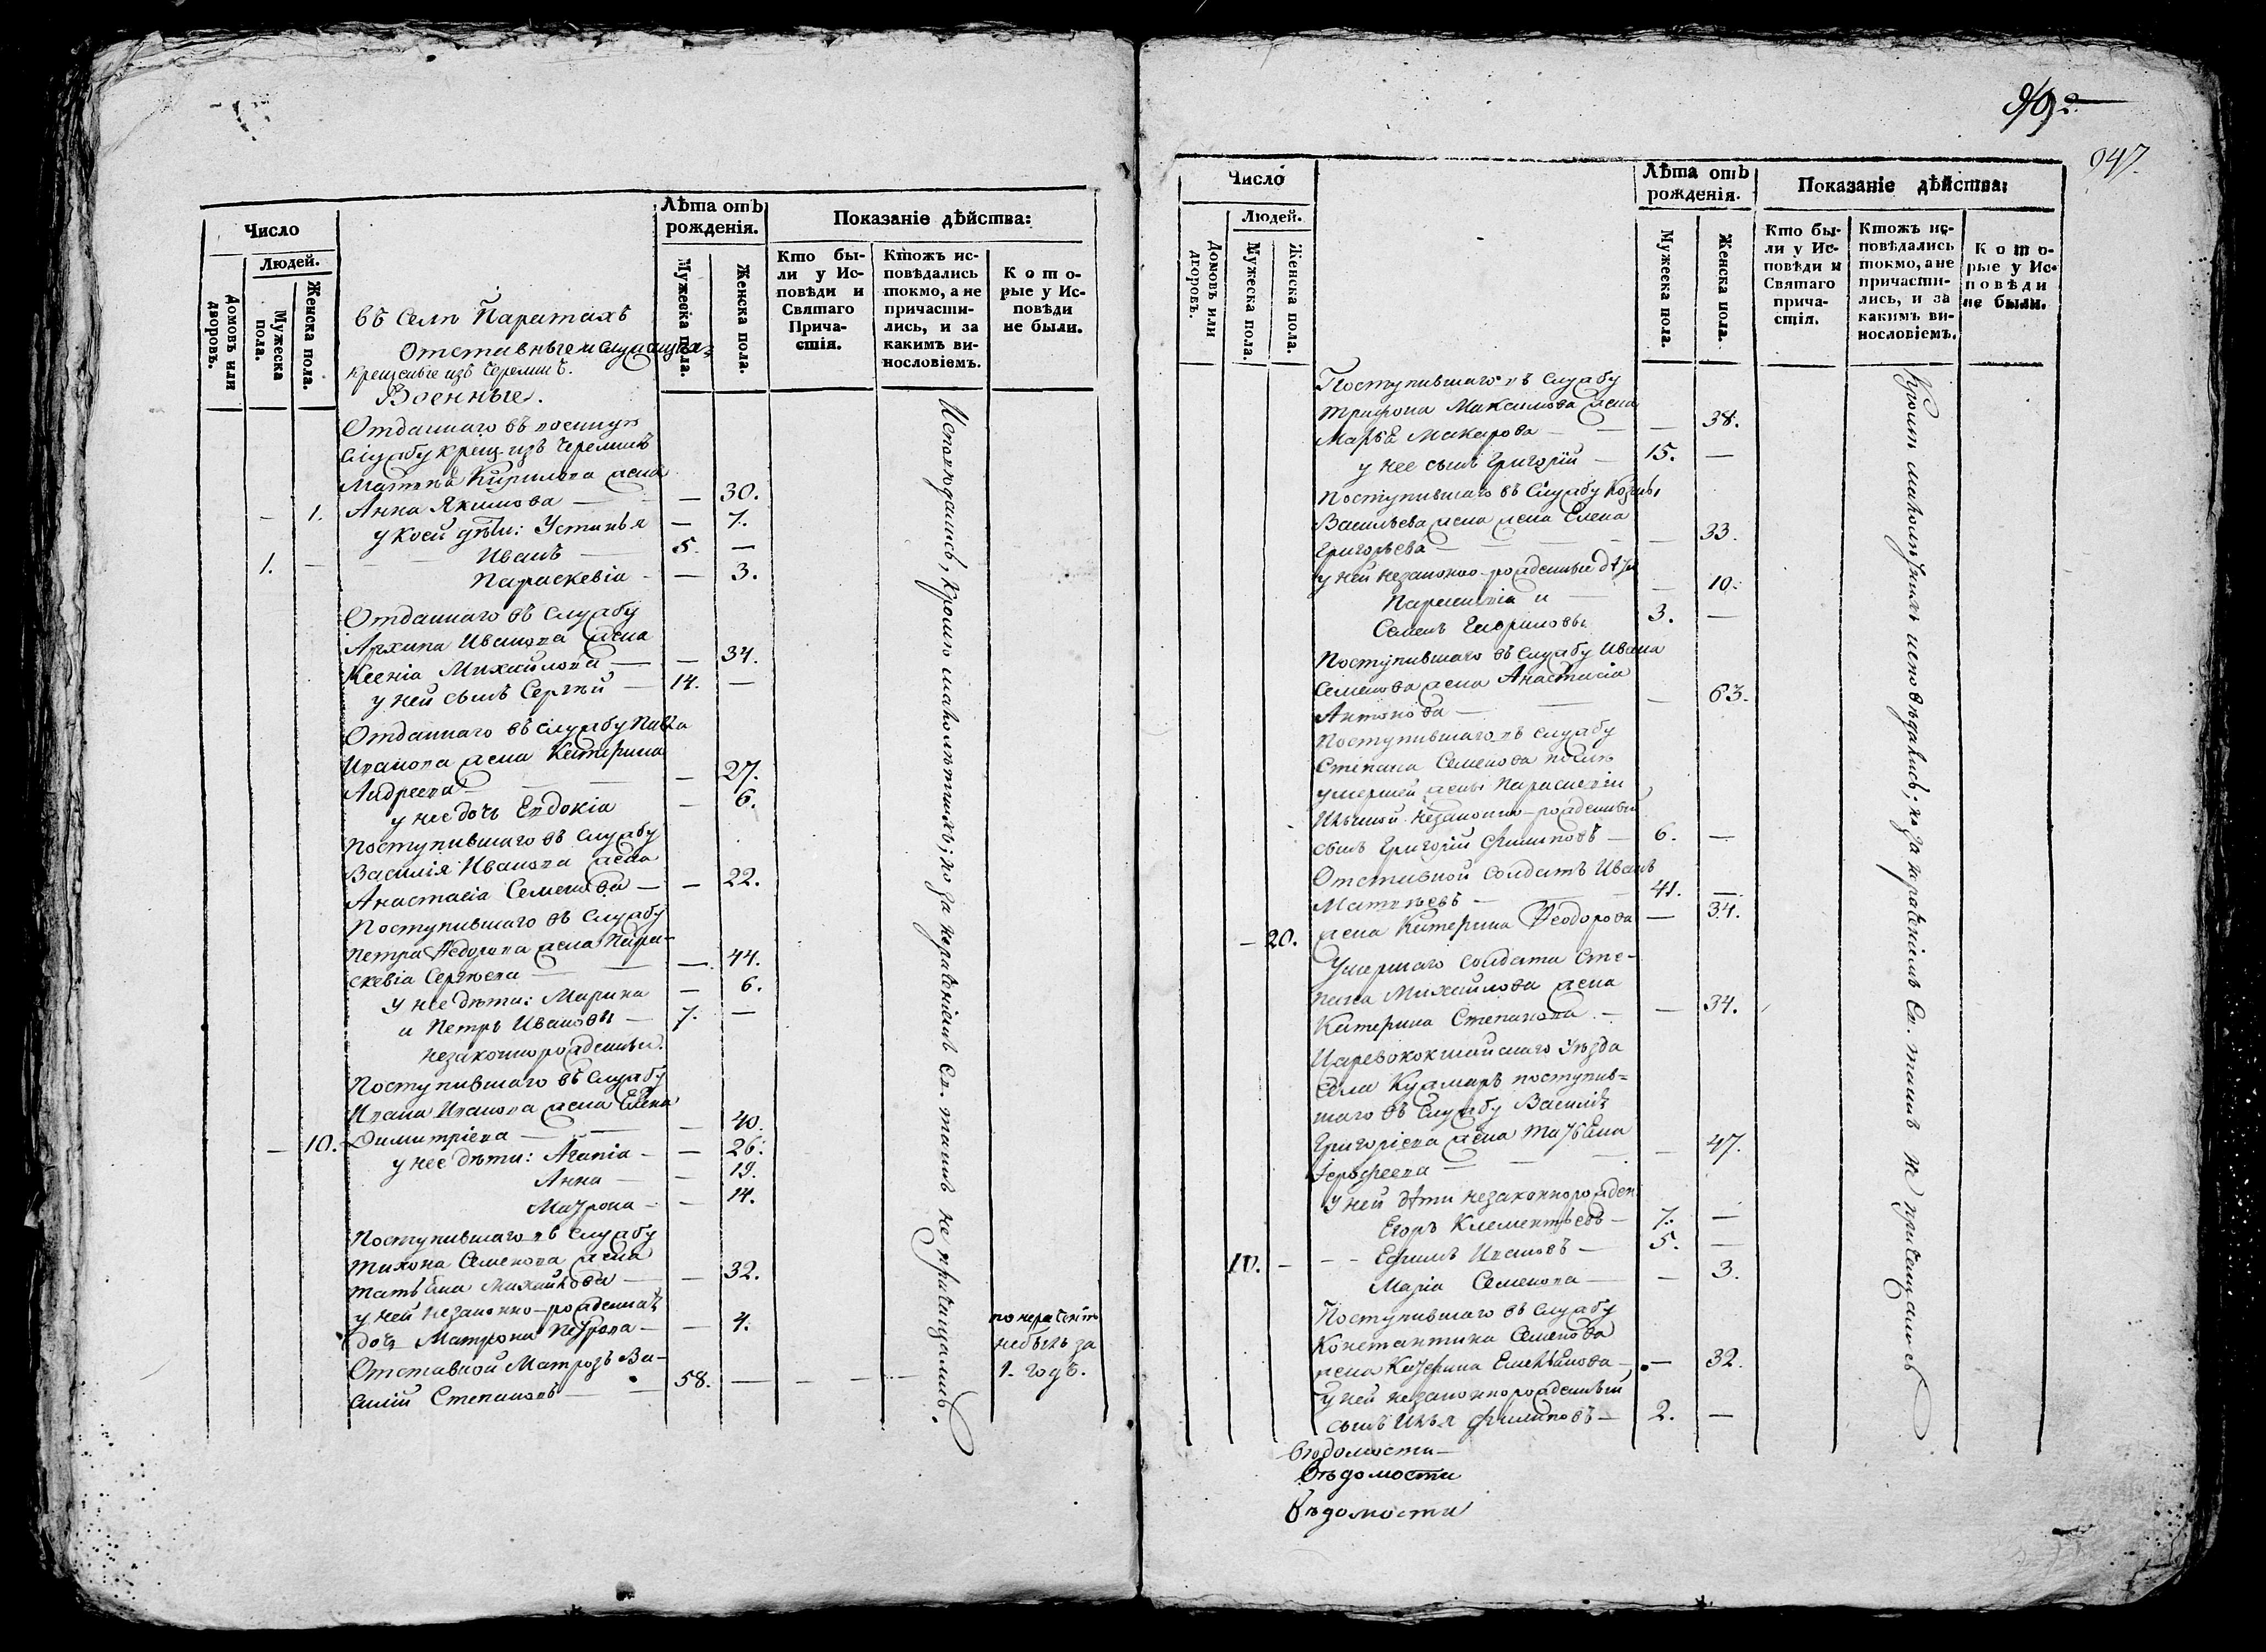 Число
Людей.
Домовъ или дворовъ.
Мужеска пола.
Женска пола.
Лѣта отъ рожденія.
Мужеска пола.
Женска пола.
Показаніе дѣйства:
Кто бы-
ли у Ис-
повѣди и
Святаго
Прича-
стія.
Ктожъ ис-
повѣдались
токмо, а не
причасти-
лись, и за
какимъ ви-
нословіемъ.
Кото-
рые у Ис-
повѣди
не были.
въ Селѣ Паратахъ
Отставные и служащія
крещеные изъ Черемисъ.
Военные.
Отданнаго въ военную
службу крещ. изъ Черемисъ
Матвѣя Кирилова жена
1. Анна Якимова — — 30.
у коей дѣти: Устинья — 7.
1. — Иванъ — 5. —
Параскевія — — 3.
Отданнаго въ службу
Архипа Иванова жена
Ксенія Михайлова — — 34.
у ней сынъ Сергѣй — 14. —
Отданнаго въ службу Павла
Иванова жена Катерина
Андреева — 27.
у нее дочь Евдокія — 6.
Поступившаго въ службу
Василія Иванова жена
Анастасія Семенова — — 22.
Поступившаго въ службу
Петра Ѳедорова жена Пара-
скевія Сергѣева — — 44.
у нее дѣти: Марина — 6.
и Петръ Ивановы — 7. —
незаконнорожденные.
Поступившаго въ службу
Ивана Иванова жена Елена
— 10. Димитріева — — 40.
у нее дѣти: Агапія — — 26.
Анна — — 19.
Матрона — — 14.
Поступившаго въ службу
Тихона Семенова жена
Татьяна Михайлова — — 32.
у ней незаконно-рожденная
дочь Матрона Петрова — — 4.
Отставной Матрозъ Ва-
силій Степановъ — 58. — — — —
Исповѣдались, кромѣ малолѣтнихъ; но за нераченіемъ Св. таинъ не причащались.
по нераченію
небылъ за
1. годъ.
947.
Число
Людей.
Домовъ или дворовъ.
Мужеска пола.
Женска пола.
Лѣта отъ
рожденія.
Мужеска пола.
Женска пола.
Показаніе дѣйства:
Кто бы-
ли у Ис-
повѣди и
Святаго
прича-
стія.
Ктожъ ис-
повѣдались
токмо, а не
причасти-
лись, и за
какимъ ви-
нословіемъ.
Кото-
рые у Ис-
повѣди
не были.
Поступившаго въ службу
Трифона Максимова жена
Марья Макарова — — 38.
у нее сынъ Григорій — 15. —
Поступившаго въ службу Козмы
Васильева жена жена Елена
Григорьева — — 33.
у ней незаконно-рожденные дѣти
Параскевія и — — 10.
Семенъ 3. —
Поступившаго въ службу Ивана
Семенова жена Анастасія
Антонова — — 63.
Поступившаго въ службу
Степана Семенова послѣ
умершей жены Параскевіи
Ильиной незаконно-рожденный
сынъ Григорій Филиповъ — 6. —
Отставной солдатъ Иванъ
Матвѣевъ — 41. —
— 20. жена Катерина Ѳеодорова — 34.
Умершаго солдата Сте-
пана Михайлова жена
Катерина Степанова — — 34.
Царевококшайскаго уѣзда
села Кужмаръ поступив-
шаго въ службу Василія
Григоріева жена Татьяна
Іерофеева — — 47.
у ней дѣти незаконнорожден.
Егоръ Клементьевъ — 7. —
10. — — — Ефимъ Ивановъ — 5. —
Марія Семенова — — 3.
Поступившаго въ службу
Константина Семенова
жена Катерина Емельянова — — 32.
у ней незаконнорожденный
сынъ Илья Филиповъ — 2. —
Кромѣ малолѣтнихъ исповѣдались; но за нераченіемъ Св. таинъ не причащались
Вѣдомости
Вѣдомости
Вѣдомости